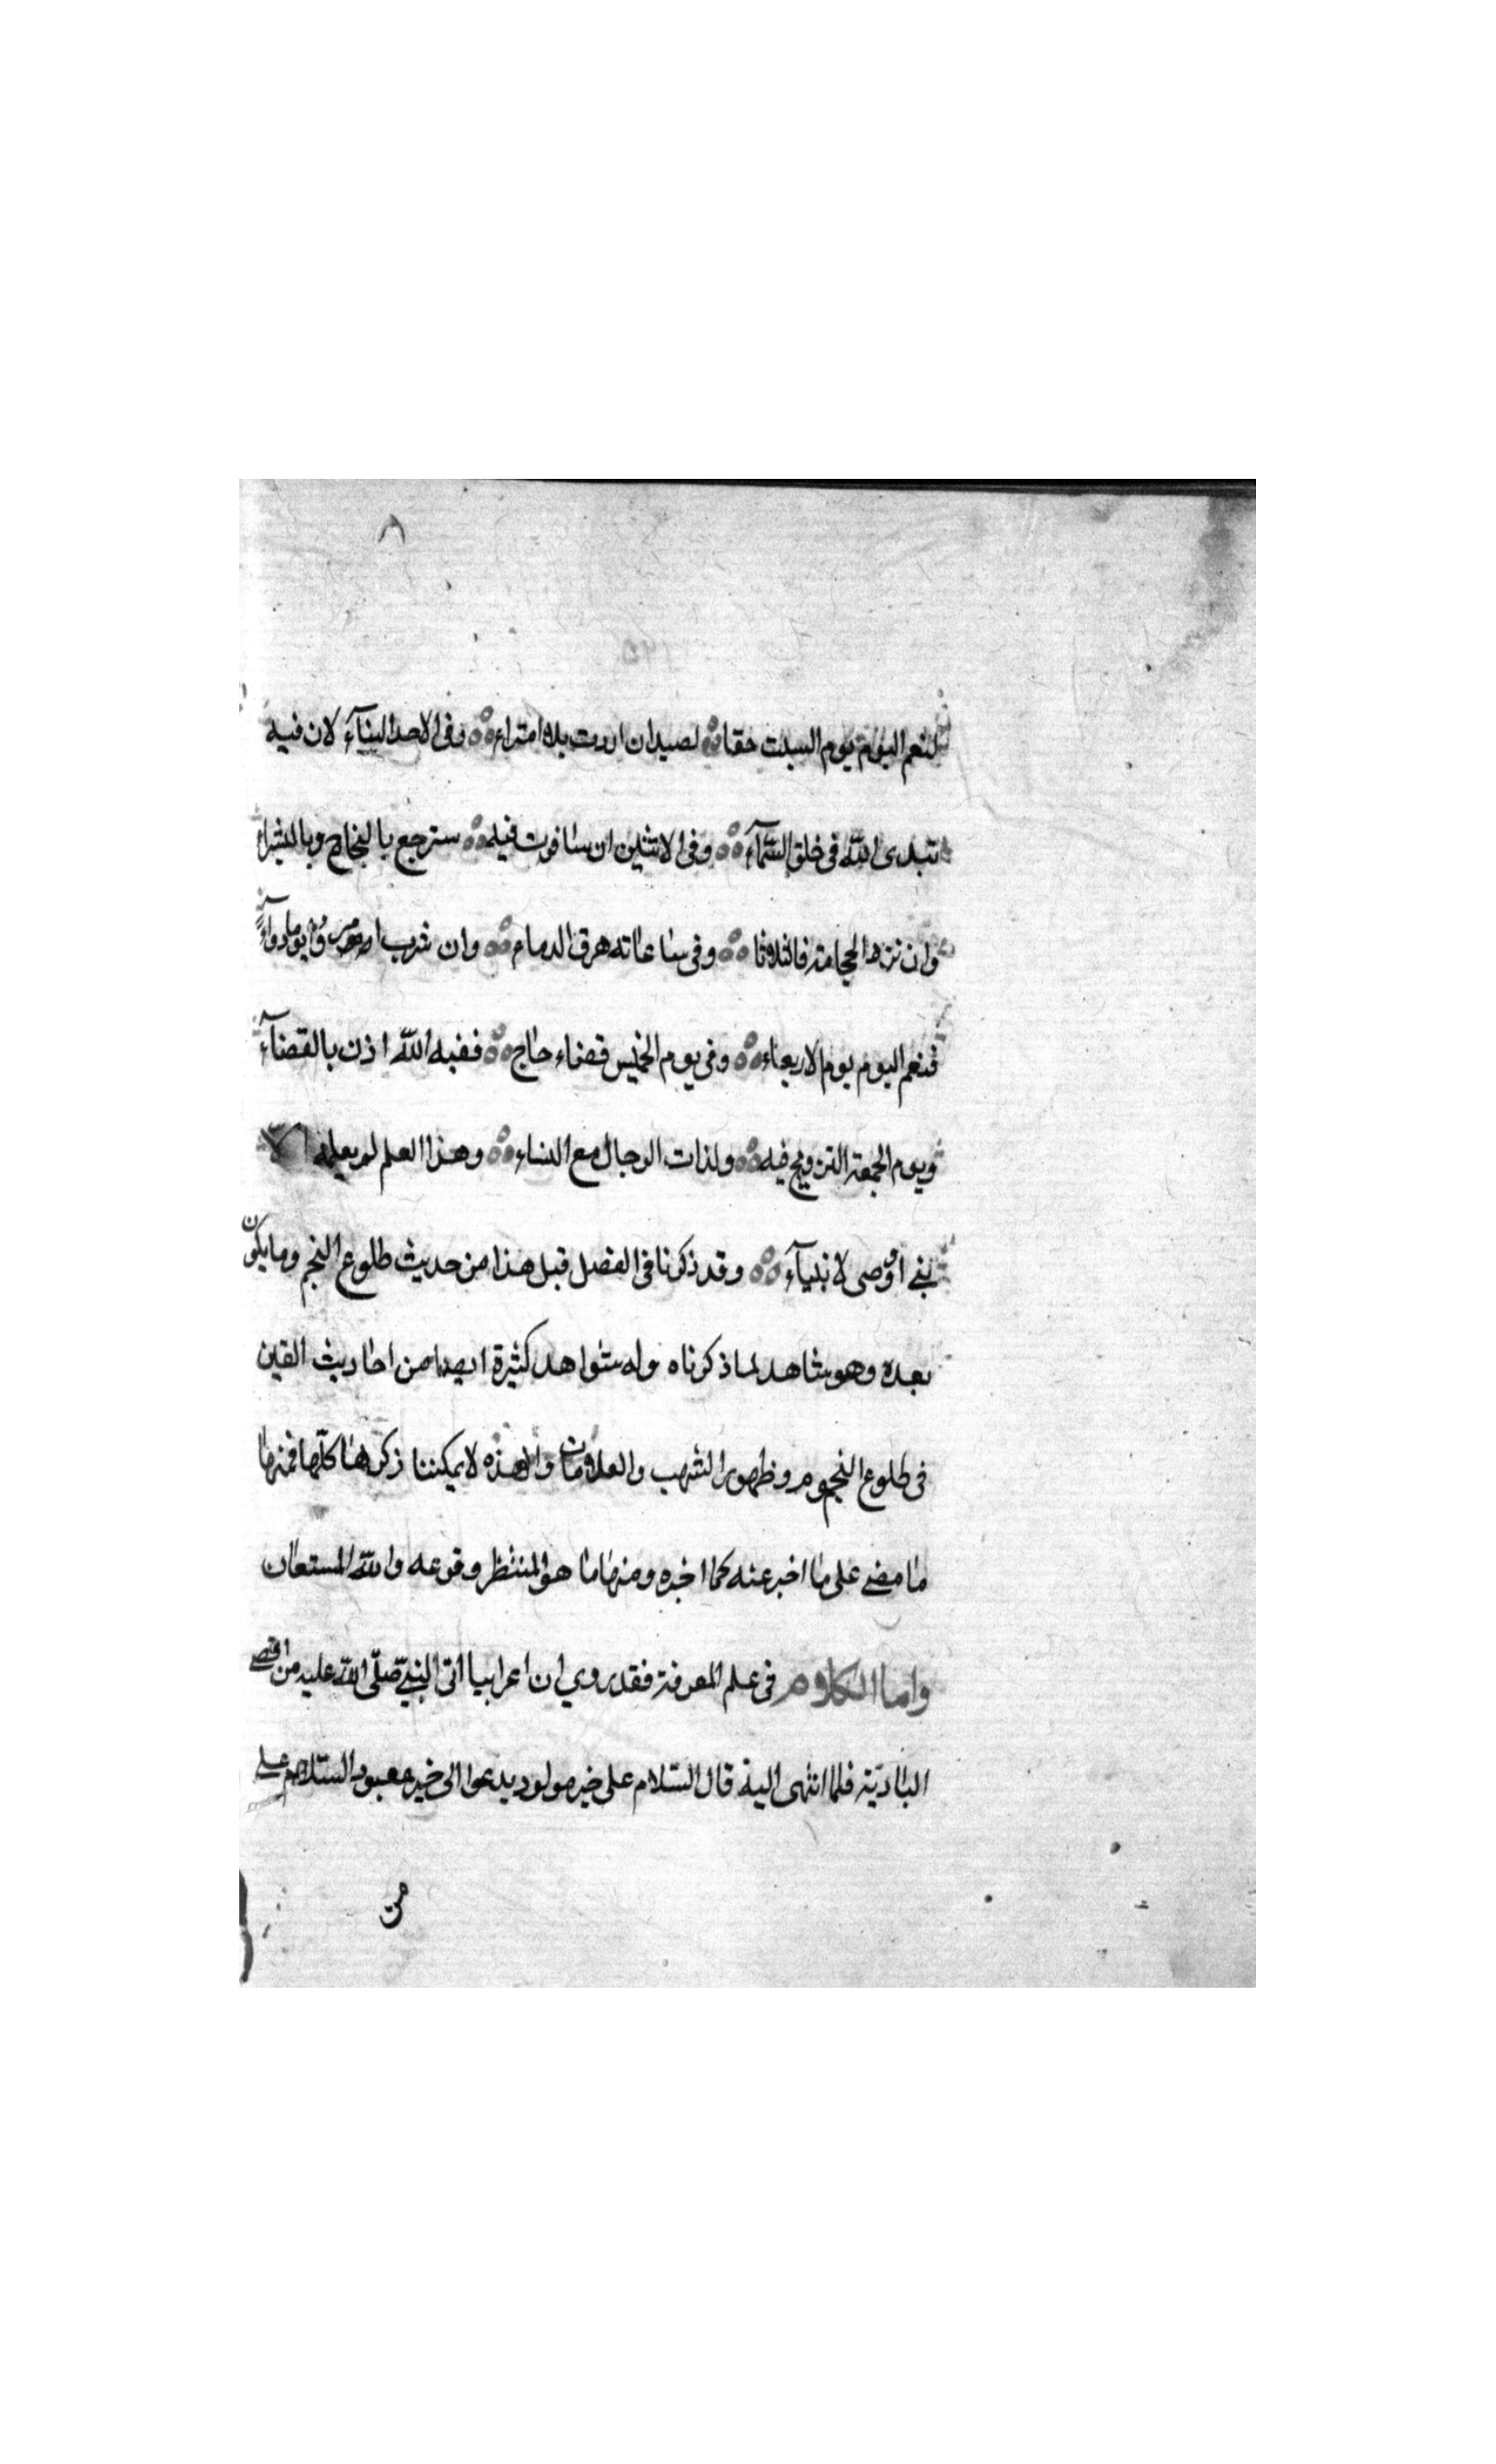 ٨
لنعم اليوم يوم السبت حقا لصيدان اردت بلاه امتراء وفى الاحد البنآء لان فيه
تبدى اللّٰه فى خلق السّمآء وفى الاثنين ان سافرت فيه سترجع بالنجاح وبالثراء
وان ترد الحجامة فالثلاثا وفى ساعاته هرق الدماء وان شرب امرؤ يوما دوآء
فنعم اليوم يوم الاربعاء وفى يوم الخميس قضاء حاج ففيه اللّٰه اذن بالقضآء
ويوم الجمعة التزويج فيه ولذات الرجال مع النساء وهذا العلم لم يعلمه الا
نبى اووصى لانبيآء وقد ذكرنا فى الفصل قبل هذا من حديث طلوع النجم وما يكون
بعده وهو شاهد لما ذكرناه وله شواهد كثيرة ايضا من احاديث
فى طلوع النجوم وظهور الشهب والعلامات وهذه لا يمكننا ذكرها كلّها فمنها
ما مضى على ما اخبر عنه كما اخبره ومنها ما هو المنتظر وقوعه واللّٰه المستعان
واما الكلام فى علم المعرفة فقد روي ان اعرابيا اتى النبيّ صلّى اللّٰه عليه من اقصى
البادّية فلما انتهى الية قال السّلام على خير مولود يدعوا الى خير معبود السّلام على
من